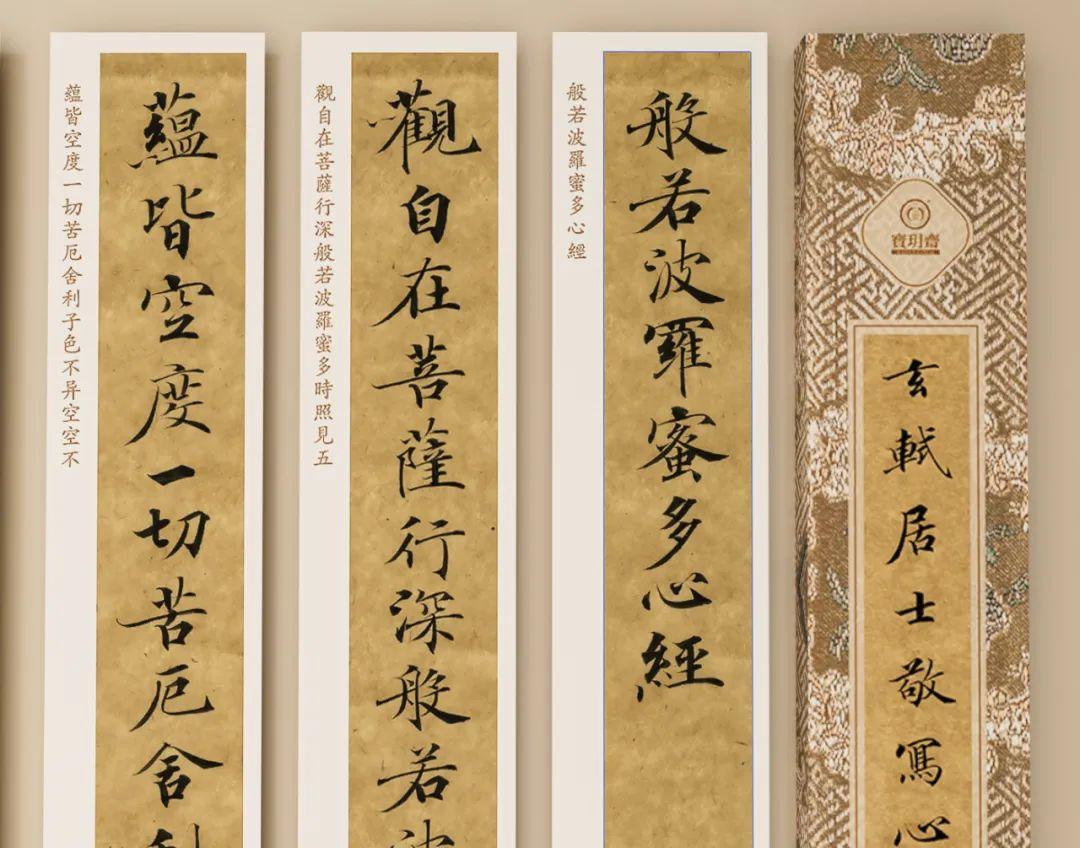 玄軾居士敬寫心
寶玥齋
般若波羅蜜多心經
般若波羅蜜多心經
觀自在菩薩行深般若波
觀自在菩薩行深般若波羅蜜多時照見五
蘊皆空度一切苦厄舍利
蘊皆空度一切苦厄舍利子色不异空空不